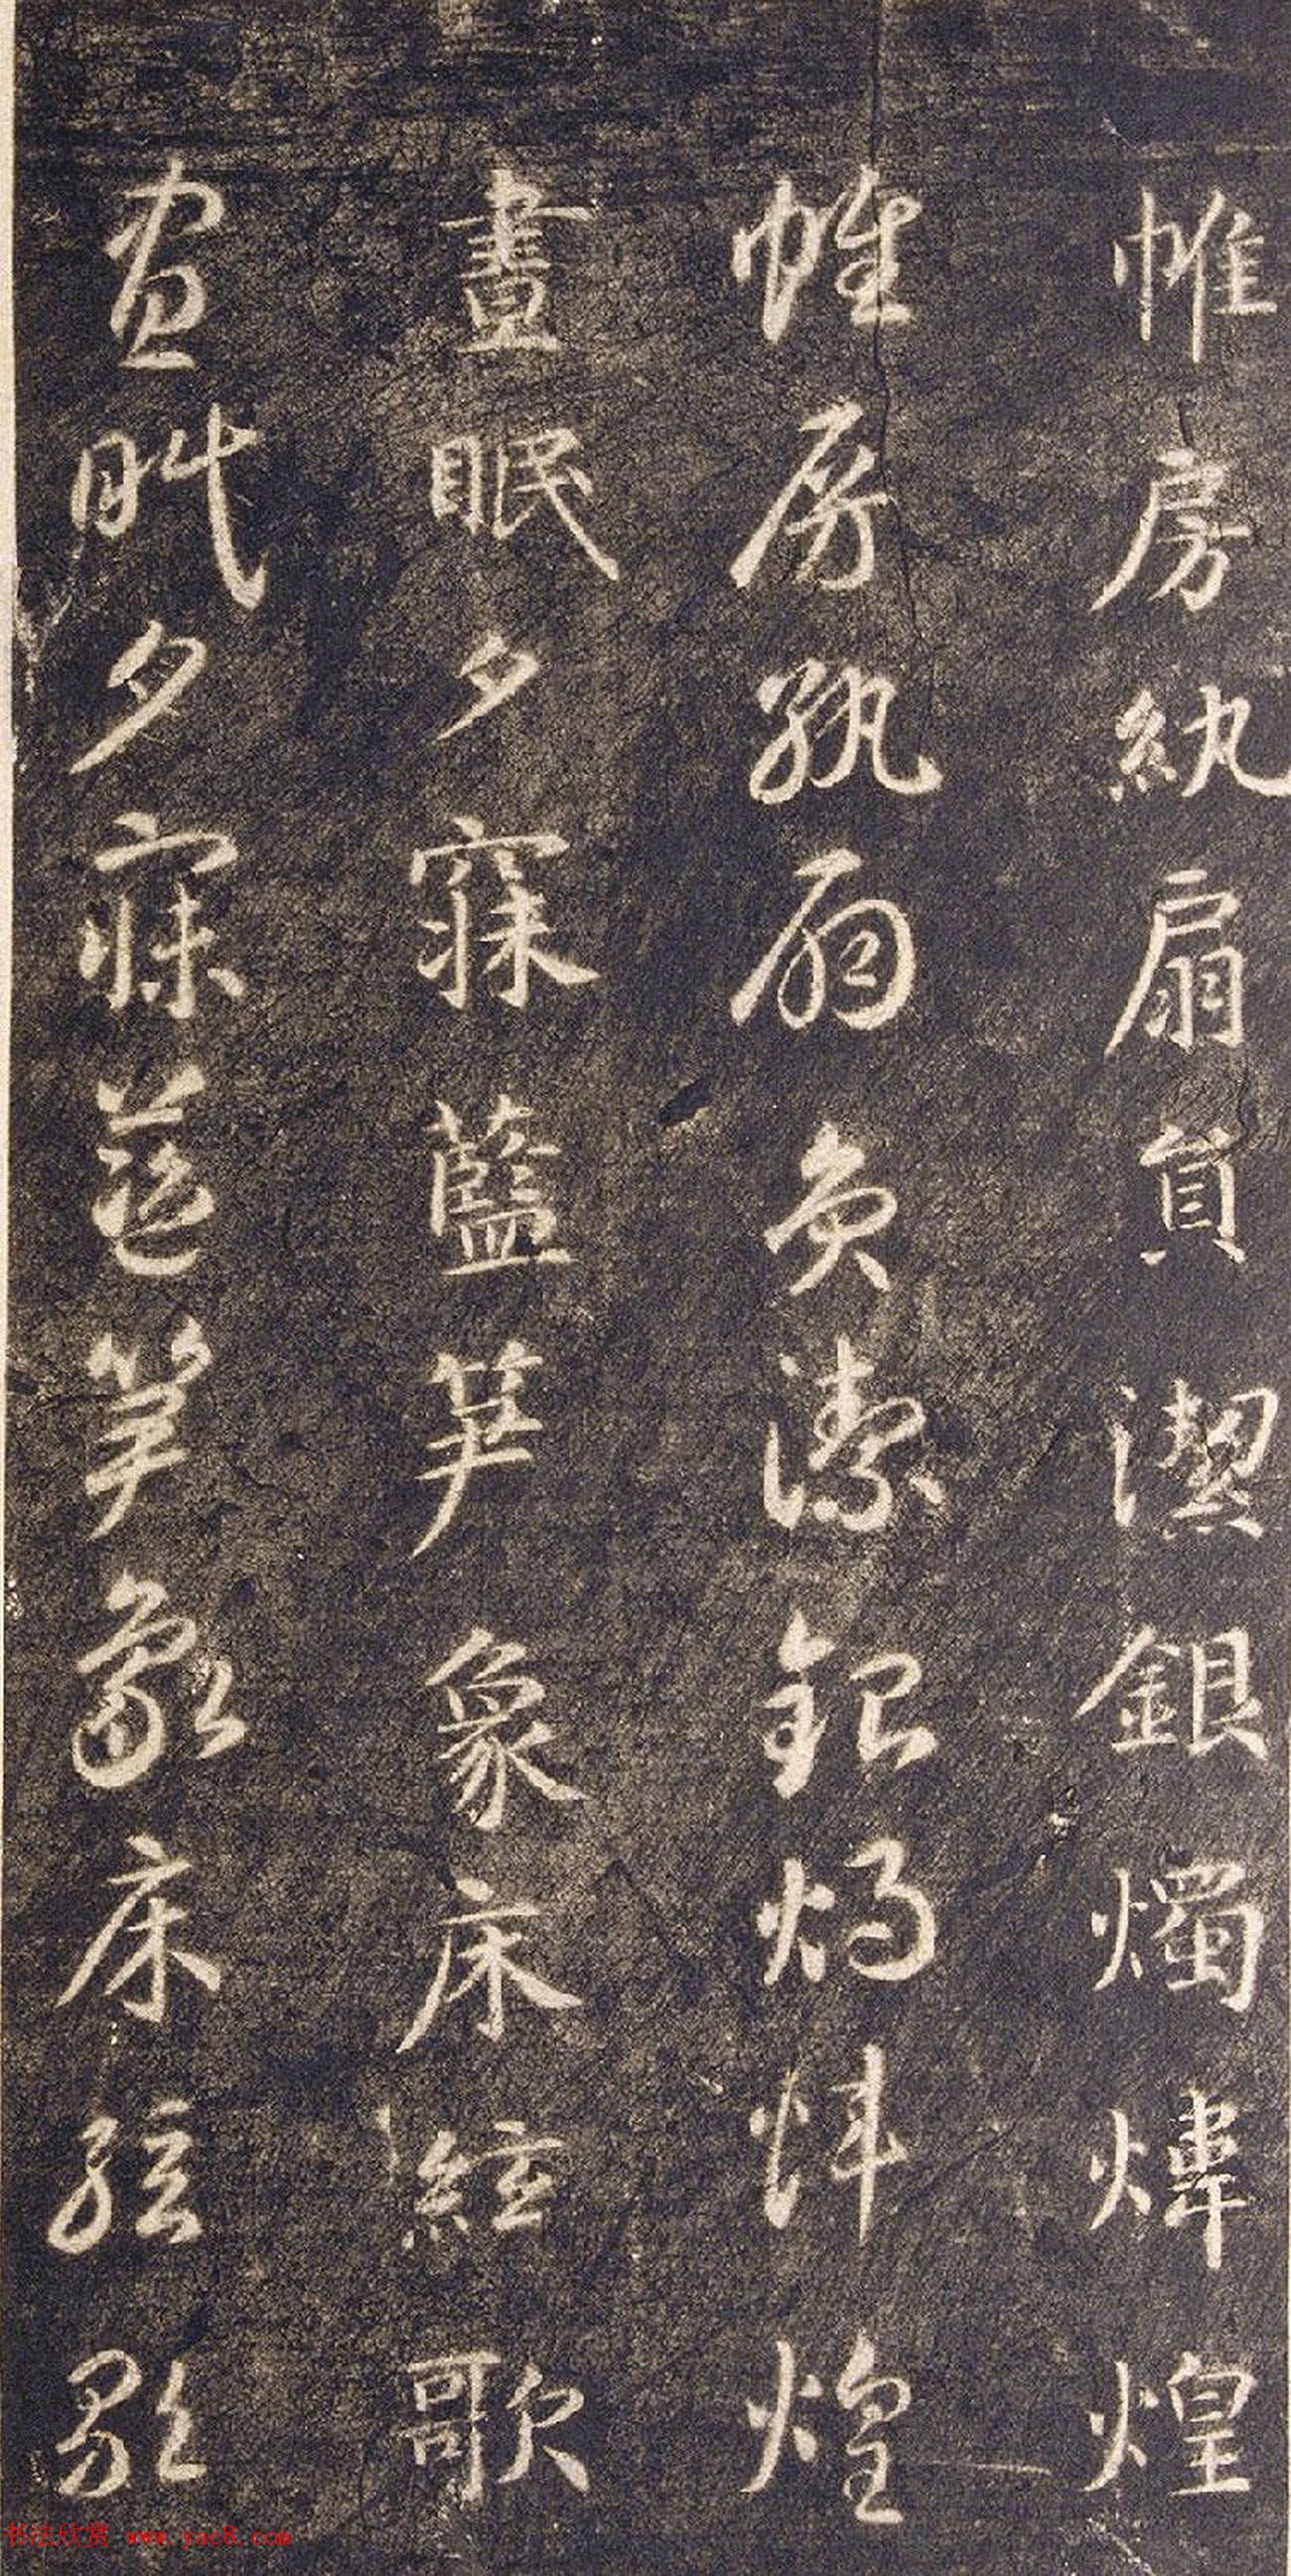 帷房紈扇員潔銀燭煒煌
帷房紈扇員潔銀燭煒煌
晝眠夕寐藍笋象床絃歌
晝眠夕寐藍笋象床絃歌
书法欣赏 www.yac8.com